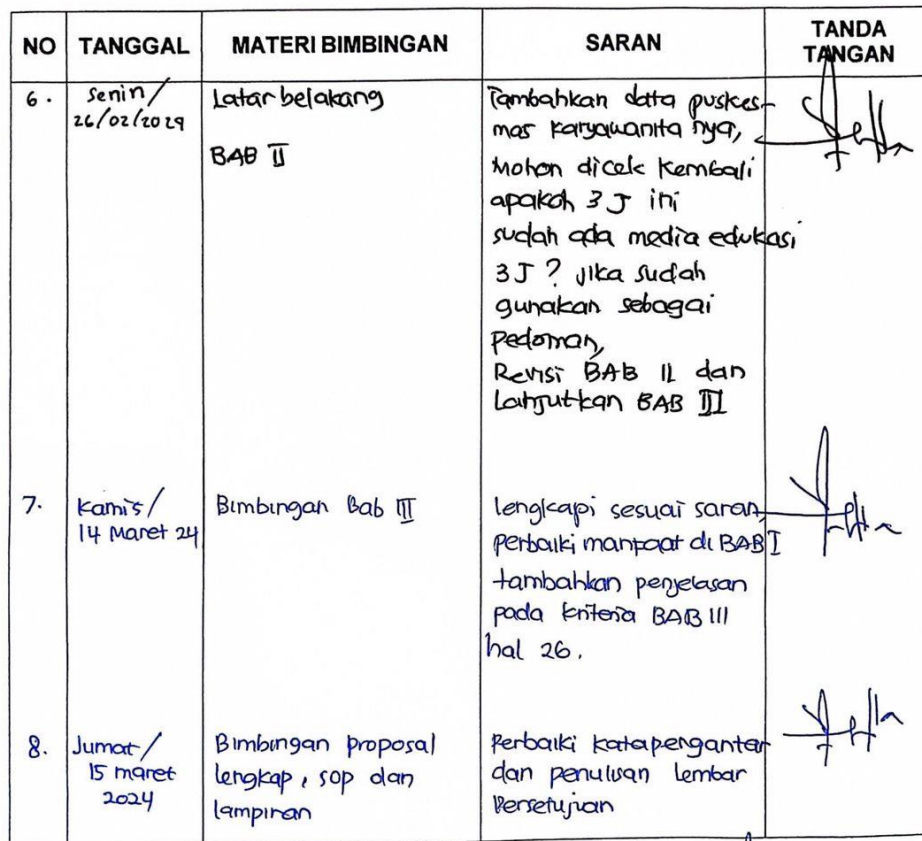 NO TANGGAL MATERI BIMBINGAN SARAN TANDA TANGAN
6. Senin/ 26/02/2029
Latar belakang
BAB II
Tambahkan data puskes-
mas karyawanita nya,
Mohon dicek kembali
apakah 3 J ini
sudah ada media edukasi
3J ? jika sudah
gunakan sebagai
pedoman,
Revisi BAB II dan
Lanjutkan BAB III
7. Kamis/
14 Maret 24
Bimbingan Bab III
lengkapi sesuai saran,
perbaiki manfaat di BAB I
tambahkan penjelasan
pada kriteria BAB III
hal 26.
8. Jumat/
15 maret
2024
Bimbingan proposal
lengkap, sop dan
lampiran
Perbaiki katapengantar
dan penulisan lembar
Persetujuan